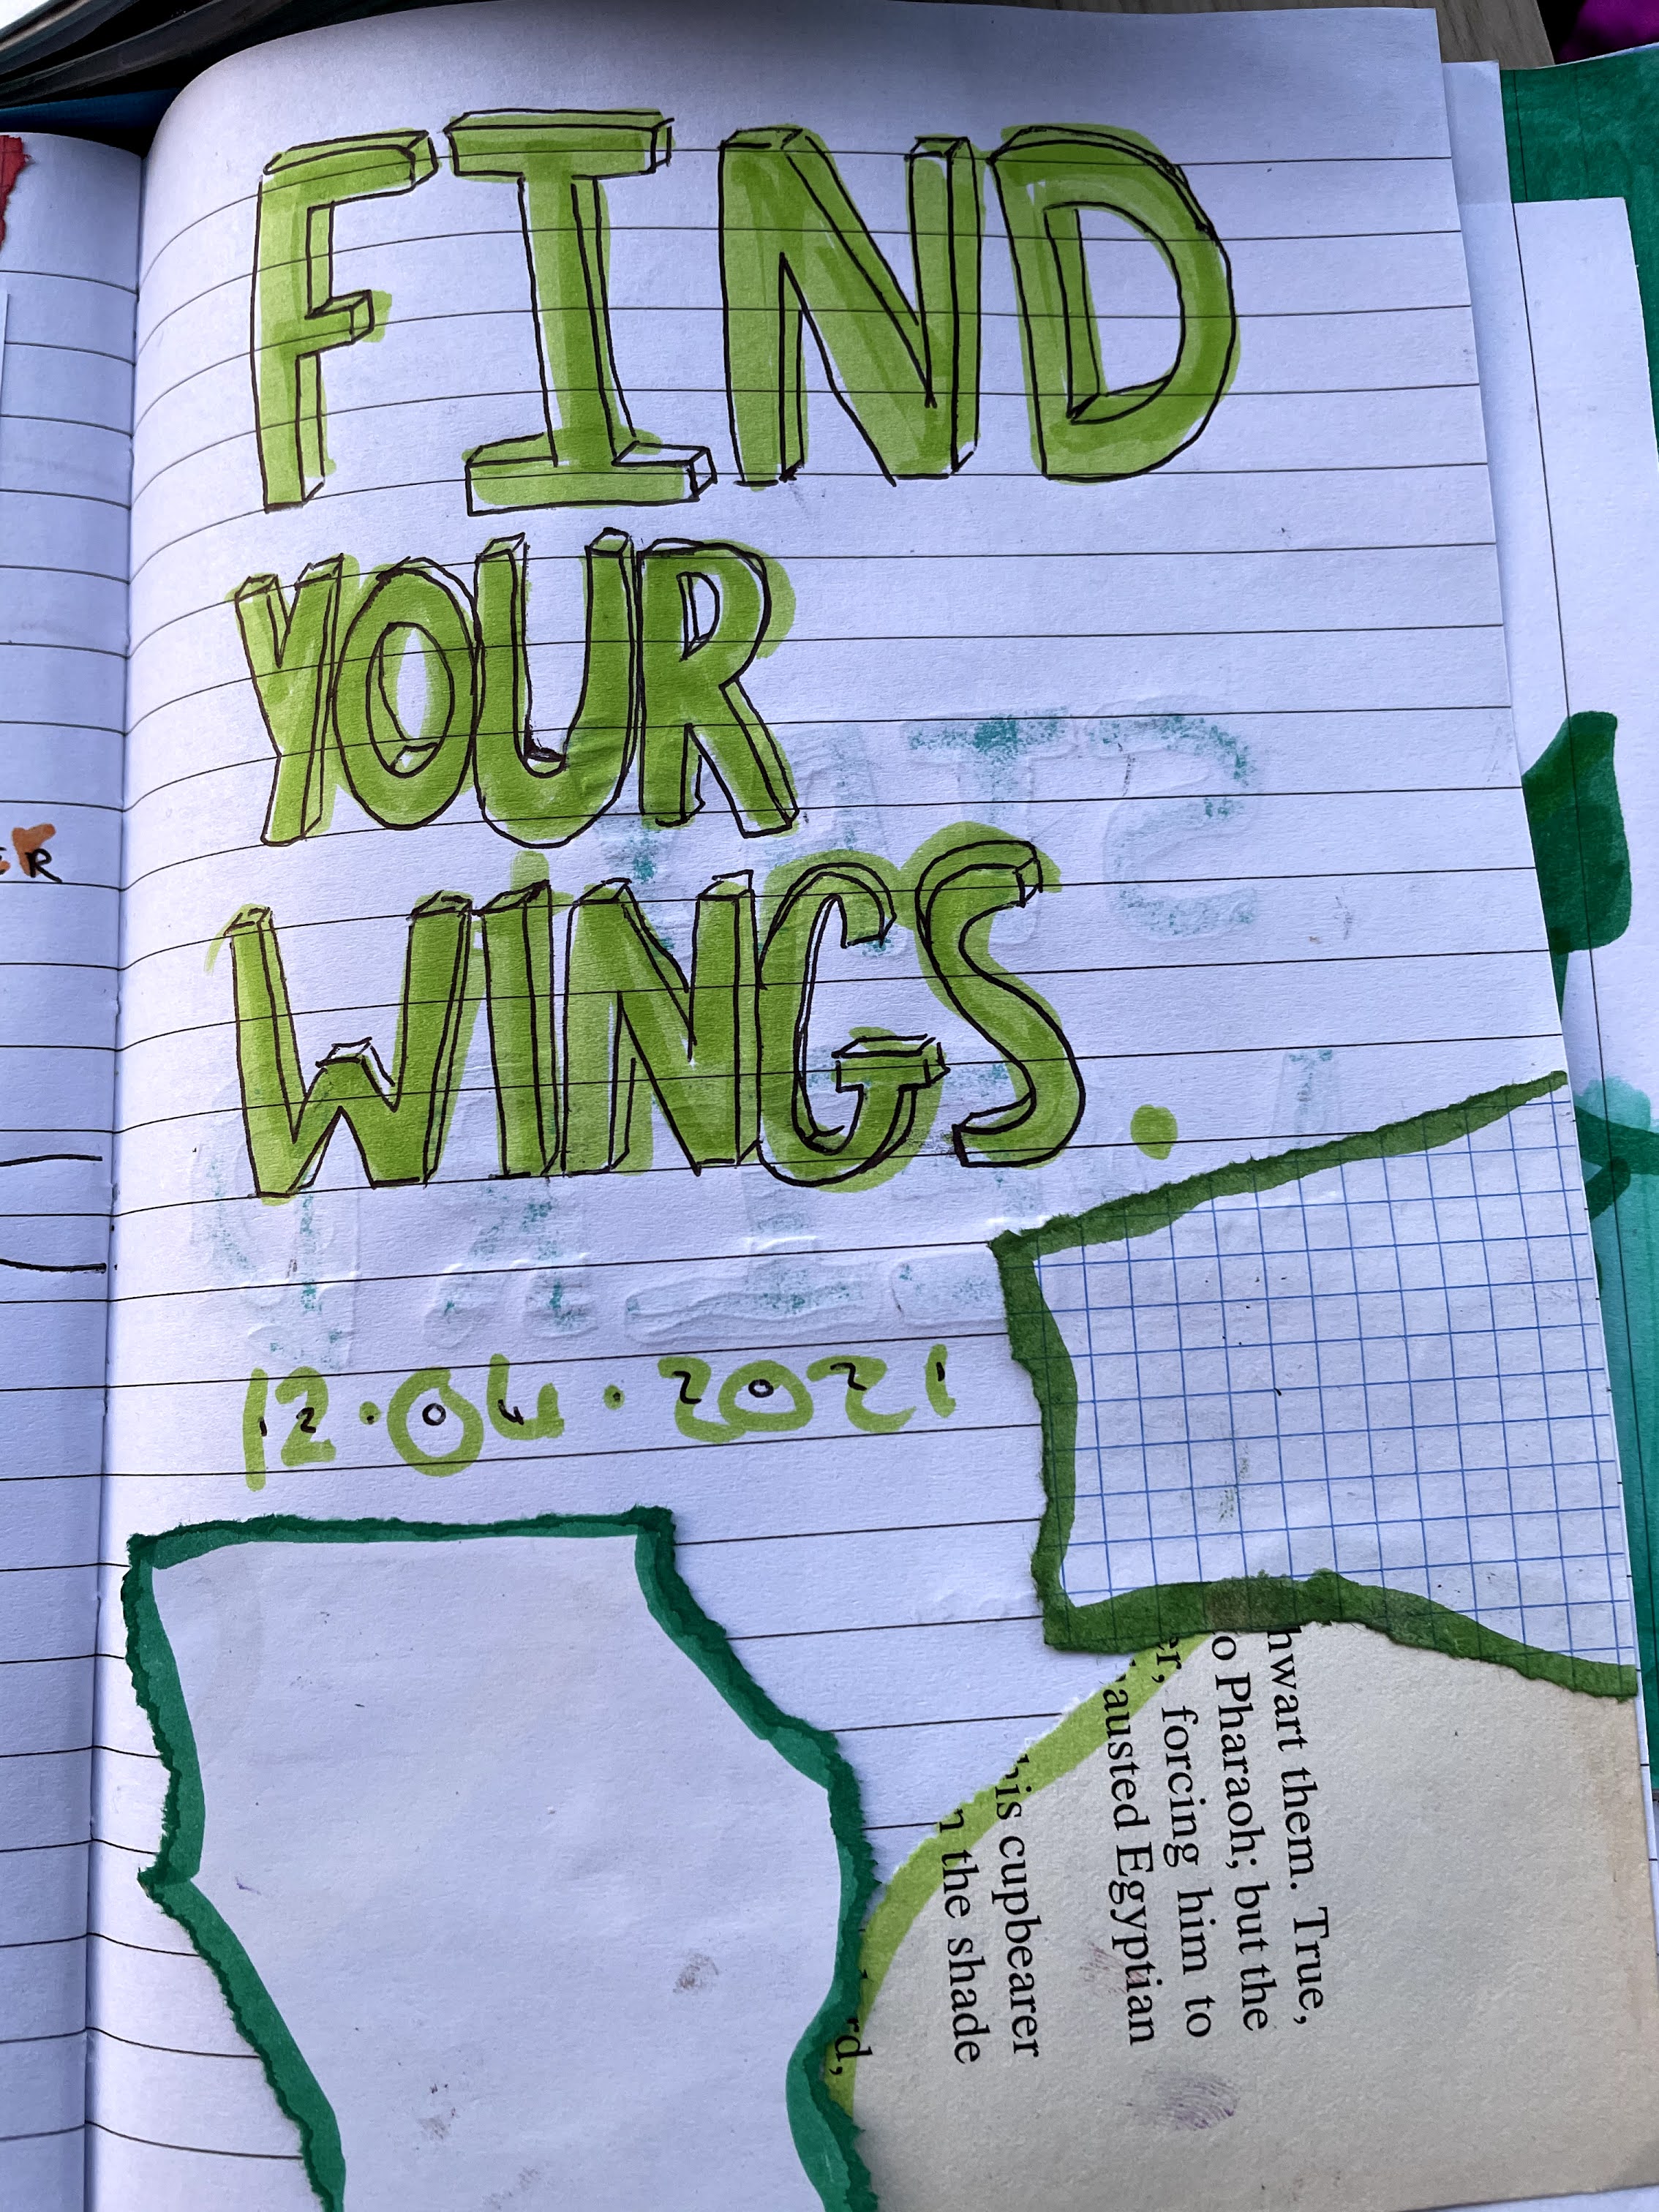 FIND
YOUR
WINGS.
12.04.2021
hwart them. True,
o Pharaoh; but the
er, forcing him to
austed Egyptian
his cupbearer
n the shade
rd,
ER